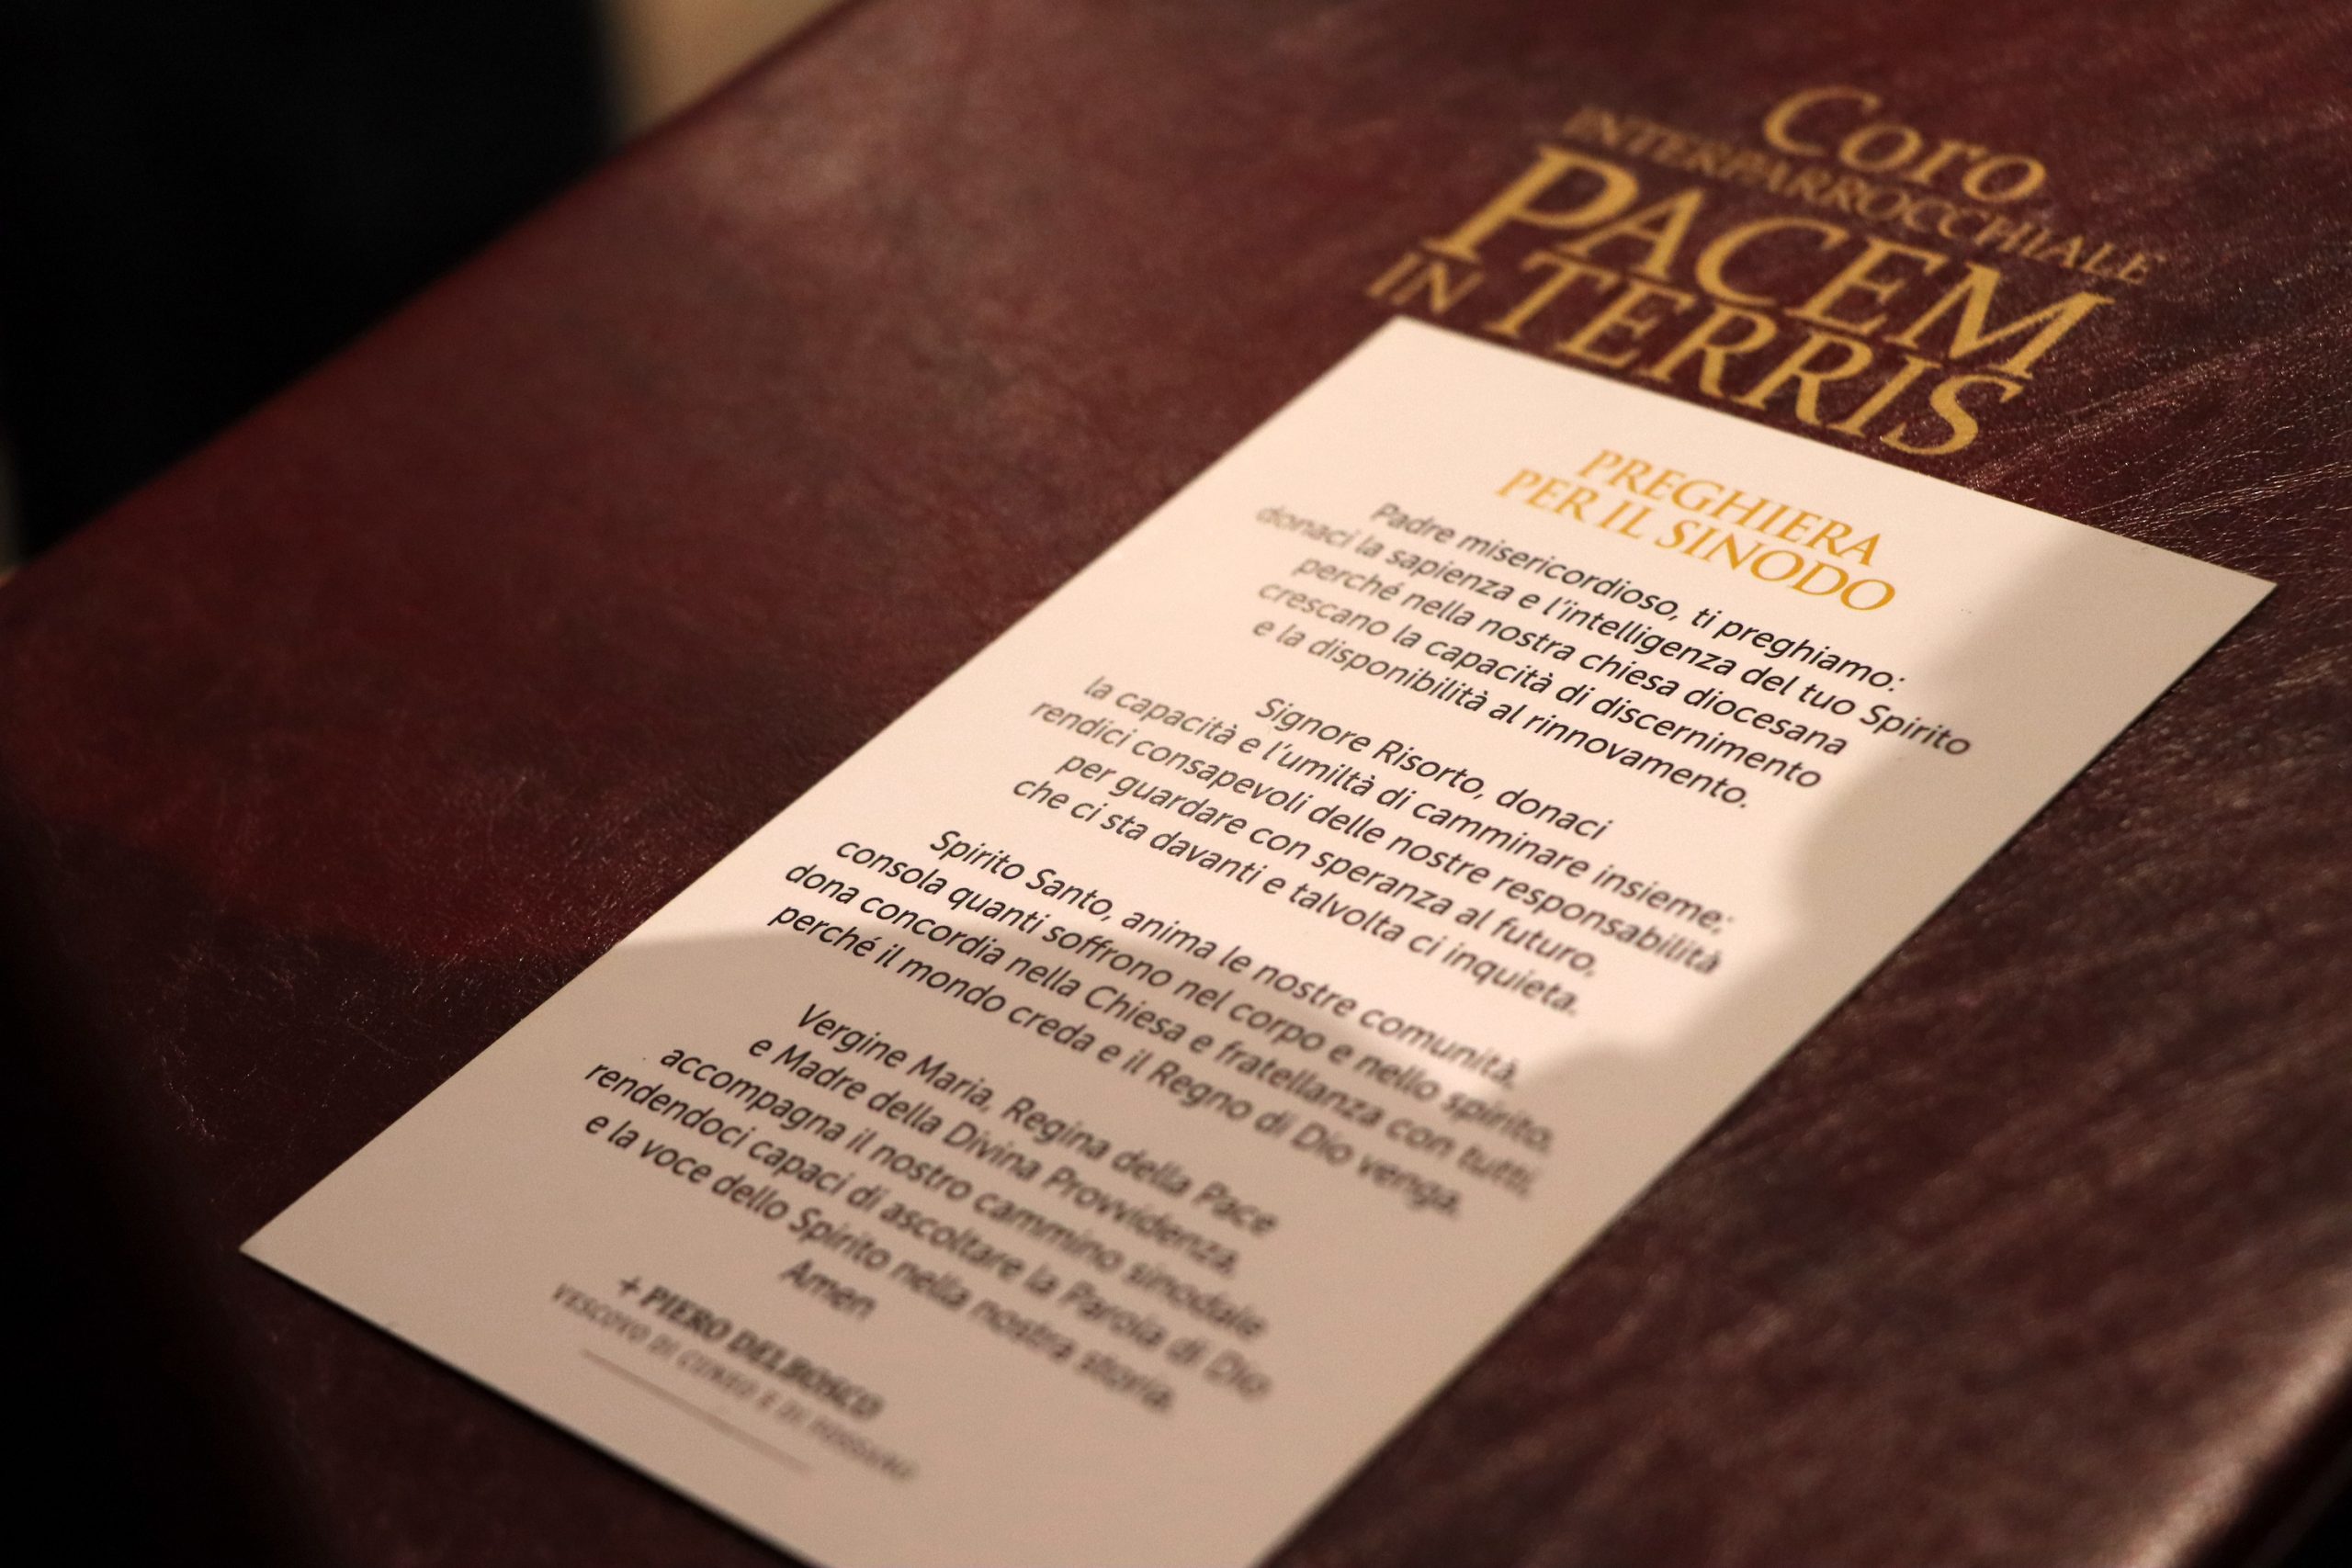 Coro
INTERPARROCCHIALE
PACEM
IN TERRIS
PREGHIERA
PER IL SINODO
Padre misericordioso, ti preghiamo:
donaci la sapienza e l'intelligenza del tuo Spirito
perché nella nostra chiesa diocesana
crescano la capacità di discernimento
e la disponibilità al rinnovamento.
Signore Risorto, donaci
la capacità e l'umiltà di camminare insieme;
rendici consapevoli delle nostre responsabilità
per guardare con speranza al futuro,
che ci sta davanti e talvolta ci inquieta.
Spirito Santo, anima le nostre comunità,
consola quanti soffrono nel corpo e nello spirito,
dona concordia nella Chiesa e fratellanza con tutti,
perché il mondo creda e il Regno di Dio venga.
Vergine Maria, Regina della Pace
e Madre della Divina Provvidenza,
accompagna il nostro cammino sinodale
rendendoci capaci di ascoltare la Parola di Dio
e la voce dello Spirito nella nostra storia.
Amen
+ PIERO DELBOSCO
VESCOVO DI CUNEO E DI FOSSANO